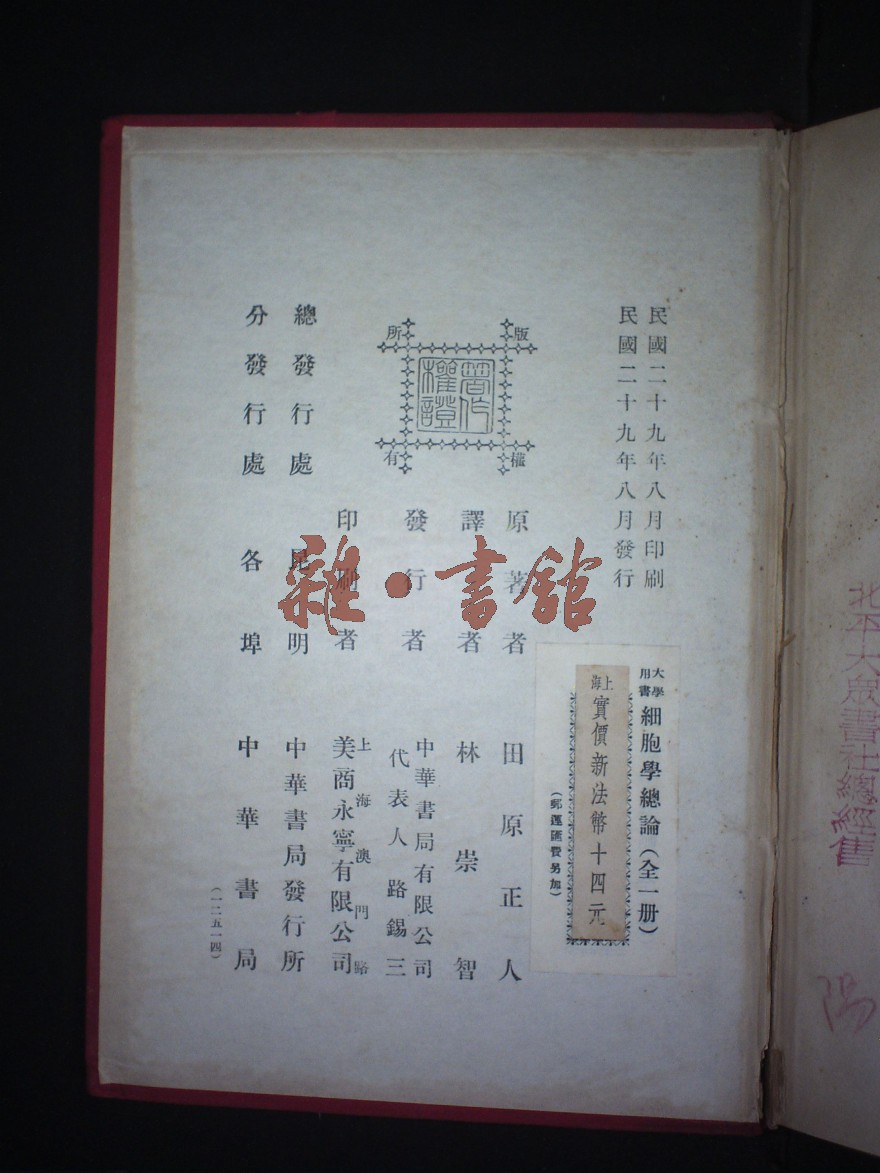 民國二十九年八月印刷
民國二十九年八月發行
大學用書
細胞學總論（全一册）
上海
實價新法幣十四元
（郵運匯費另加）
版權所有
著作權證
原著者 田原正人
譯者 林崇智
發行者 中華書局有限公司
代表人路錫三
印刷者 上海澳門路
美商永寧有限公司
總發行處 昆明 中華書局發行所
分發行處 各埠 中華書局
（一二五一四）
雜·書館
北平大眾書社總經售
陽